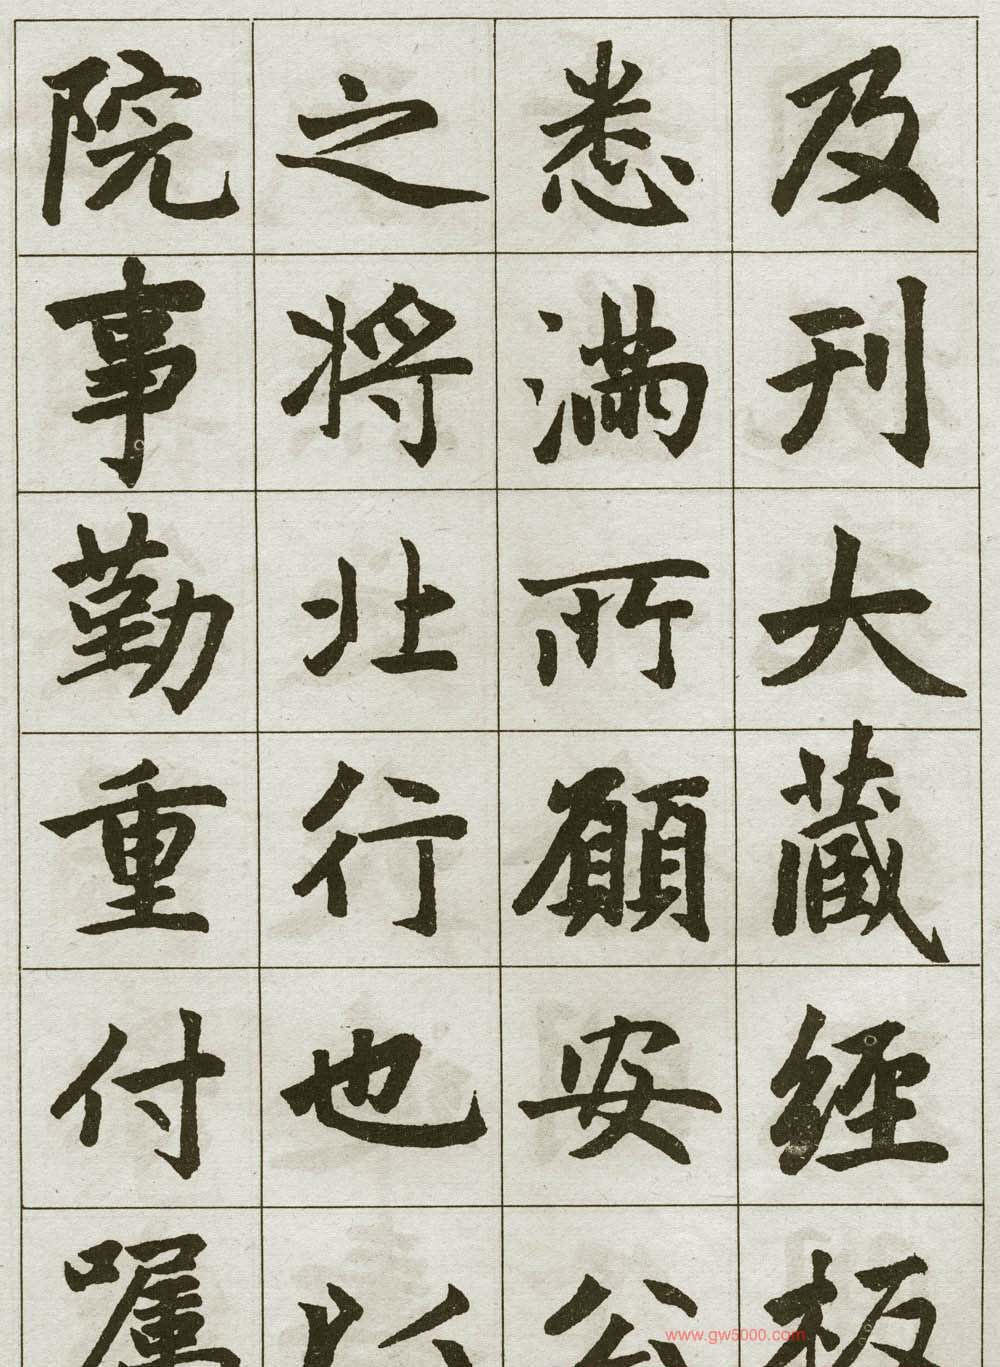 及刊大藏經板
悉滿所願安公
之將北行也以
院事勤重付囑
www.gw5000.com